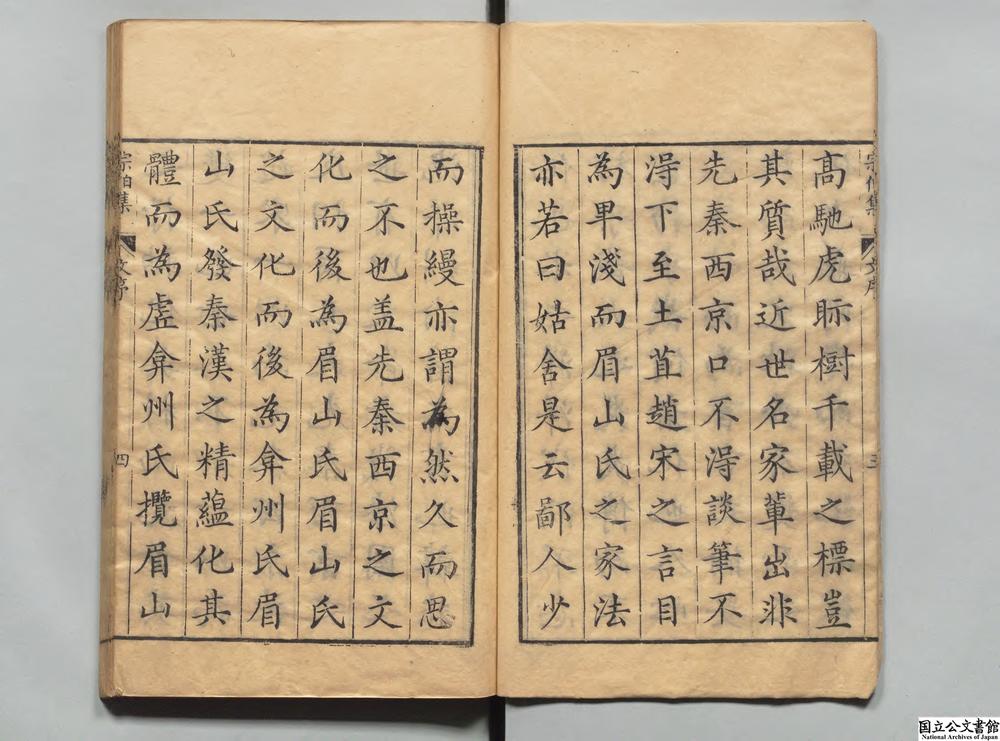 高馳虎眎樹千載之標豈
其質哉近世名家軰出非
先秦西京口不淂談筆不
淂下至土苴趙宋之言目
為卑淺而眉山氏之家法
亦若曰姑舍是云鄙人少
而操縵亦謂為然久而思
之不也盖先秦西京之文
化而後為眉山氏眉山氏
之文化而後為弇州氏眉
山氏發秦漢之精蘊化其
體而為虗弇州氏攬眉山
宗伯集
文序
四
国立公文書館
National Archives of Japan